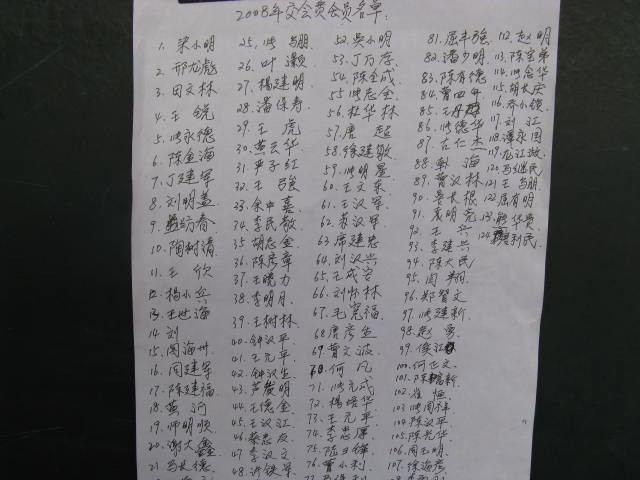 2008年交会费会员名单:
1. 梁小明
2. 邢龙彪
3. 田文林
4. 王 锐
5. 洪永德
6. 陈金海
7. 丁建军
8. 刘明盖
9. 访春
10. 陶树清
11. 王 欣
12. 杨小兵
13. 王世海
14. 刘
15. 周海州
16. 周建军
17. 陈建福
18. 黄 河
19. 帅明顺
20. 谢大鑫
21. 马长德
25. 洪 朋
26. 叶 灏
27. 杨建明
28. 潘保寿
29. 王 虎
30. 燕云华
31. 严子红
32. 王 强
33. 余中喜
34. 李民敬
35. 胡志金
36. 陈彦章
37. 王晓力
38. 李明月
39. 王树林
40. 钟汉平
41. 王元平
42. 钟汉生
43. 芦发明
44. 王德金
45. 王汉江
46. 蔡忠友
47. 李汉文
48. 许铁军
52. 吴小明
53. 丁万存
54. 陈金成
55. 洪志金
56. 杜华林
57. 唐 超
58. 徐建敏
59. 洪明星
60. 王文东
61. 王汉军
62. 苏汉军
63. 席建忠
64. 刘汉兴
65. 王成安
66. 刘怀林
67. 毛宽福
68. 唐彦生
69. 曹文波
70. 何 凡
71. 洪元成
72. 杨培华
73. 王元平
74. 李忠厚
75. 陆
76. 曹小利
81. 屈丰强
82. 潘少明
83. 陈寿德
84. 曹四年
85. 王丹
86. 洪德华
87. 左仁杰
88. 海
89. 曹汉林
90. 吴长根
91. 席明亮
92. 王 兵
93. 李建兵
94. 陈大民
95. 周 翔
96. 郑智文
97. 洪建新
98. 赵 勇
99. 侯江
100. 何世文
101. 陈新
102. 崔 恒
103. 洪国祥
104. 陈汉平
105. 陈光华
106. 周王明
107. 徐海彦
112. 赵 明
113. 陈宝弟
114. 洪金华
115. 胡长庆
116. 乔小领
117. 刘 江
118. 谭永国
119. 龙江波
120. 马继民
121. 王 朋
122. 屈有明
123. 华贵
124. 利民